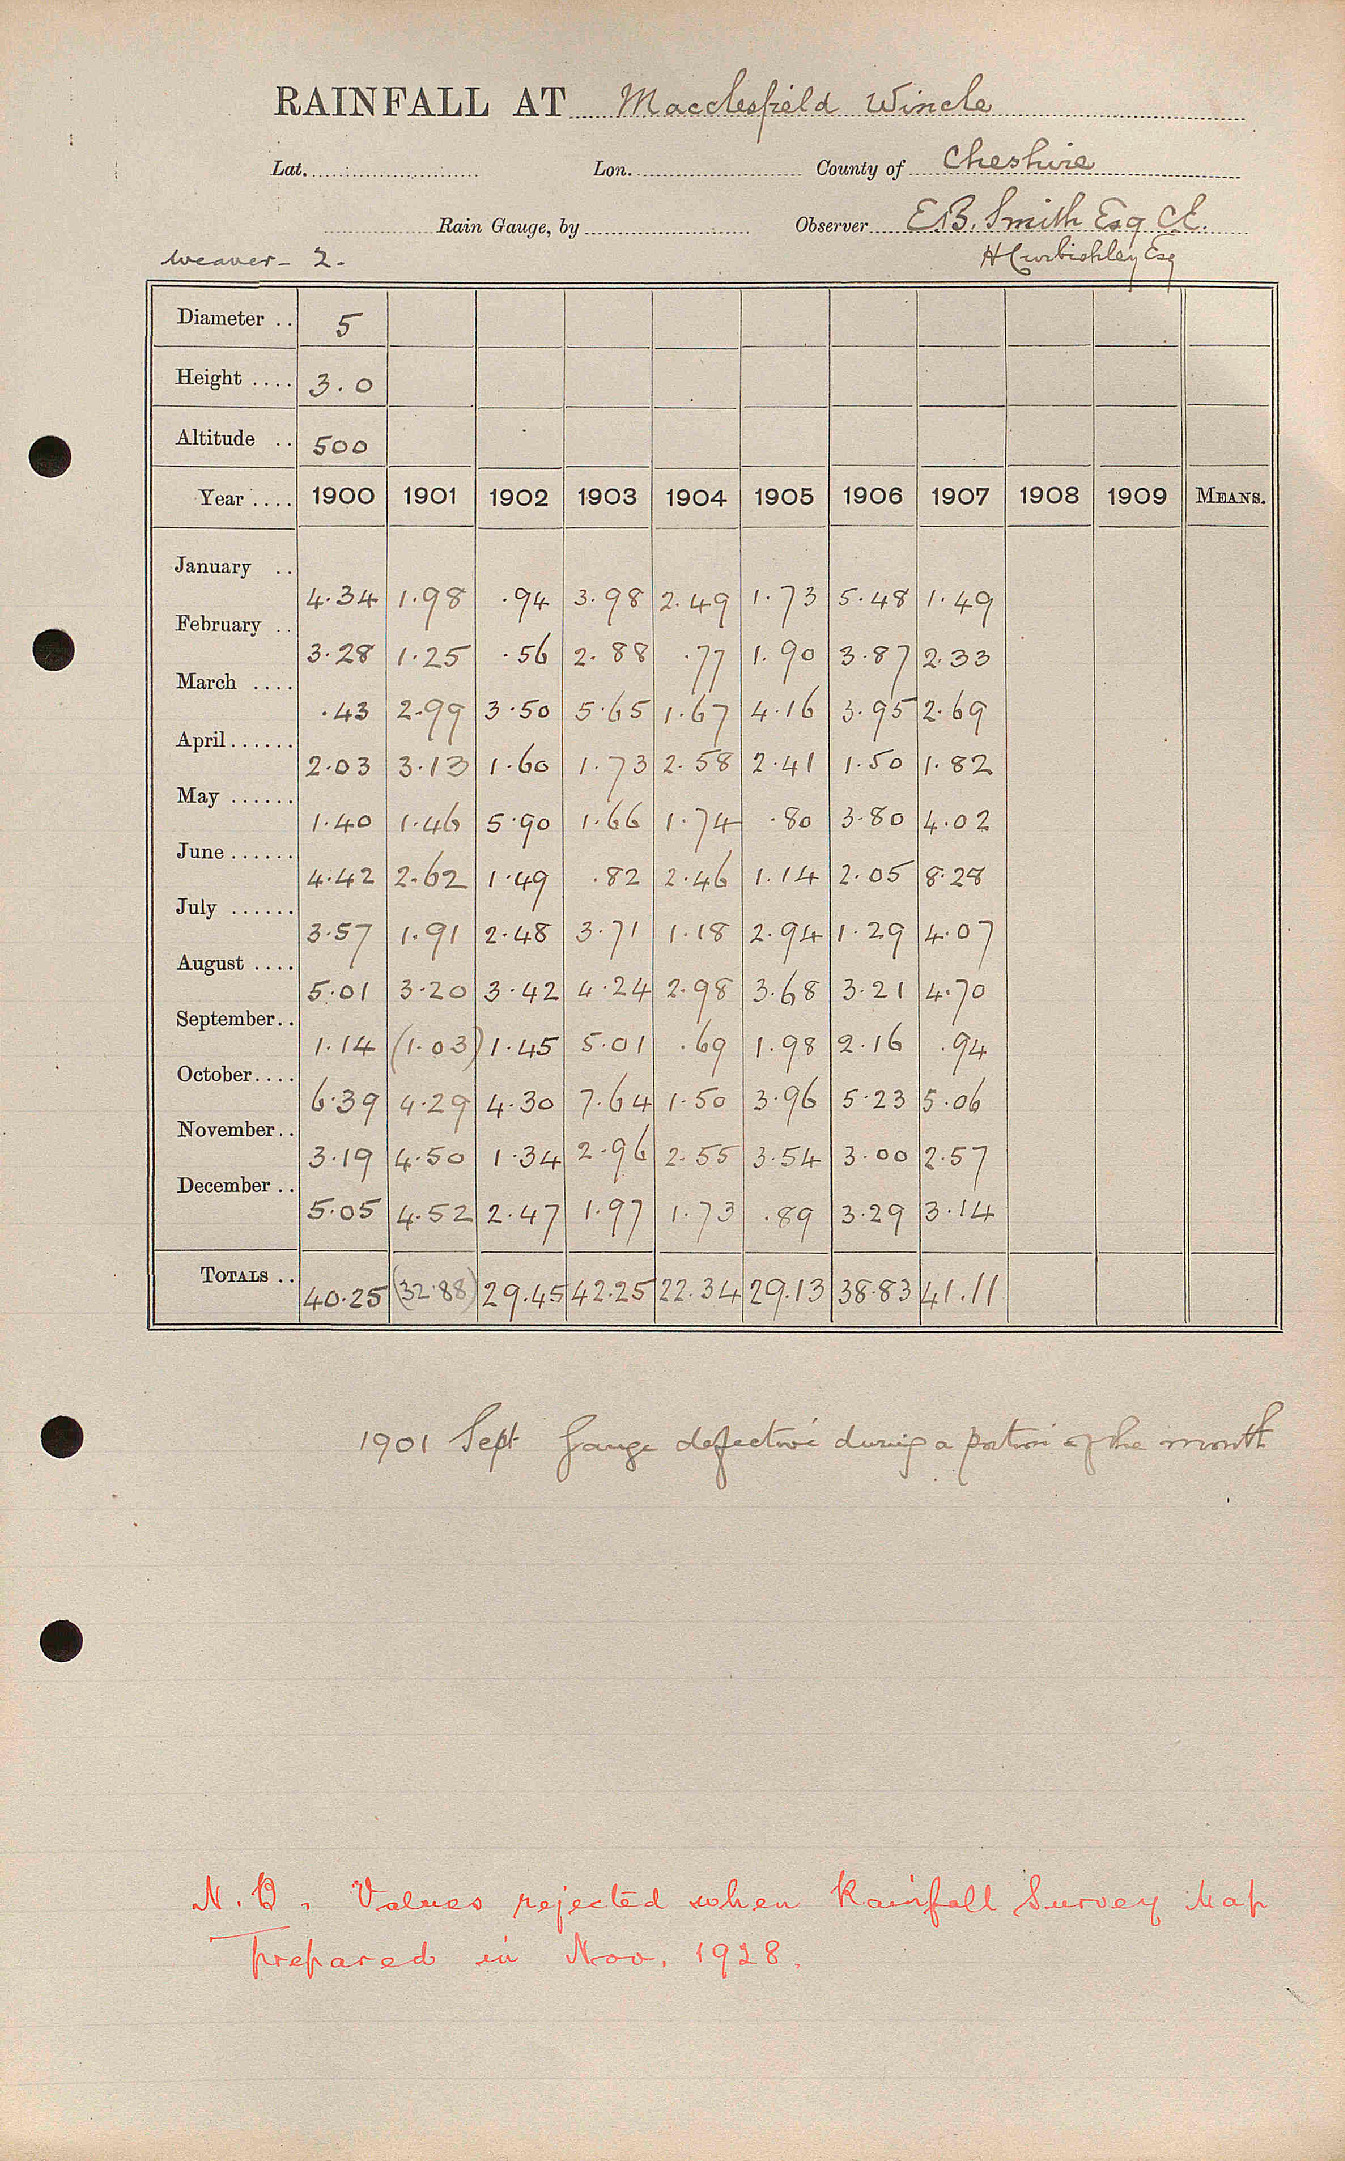 RAINFALL AT Macclesfield Wincle
Lat. Lon. County of Cheshire
Rain Gauge, by Observer E.B. Smith Esq C.E.
Weaver - 2. H Curbishley Esq
Diameter .. 5
Height .... 3.0
Altitude .. 500
Year .... 1900 1901 1902 1903 1904 1905 1906 1907 1908 1909 MEANS.
January .. 4.34 1.98 .94 3.98 2.49 1.73 5.48 1.49
February .. 3.28 1.25 .56 2.88 .77 1.90 3.87 2.33
March .... .43 2.99 3.50 5.65 1.67 4.16 3.95 2.69
April ...... 2.03 3.13 1.60 1.73 2.58 2.41 1.50 1.82
May ...... 1.40 1.46 5.90 1.66 1.74 .80 3.80 4.02
June ...... 4.42 2.62 1.49 .82 2.46 1.14 2.05 8.28
July ...... 3.57 1.91 2.48 3.71 1.18 2.94 1.29 4.07
August .... 5.01 3.20 3.42 4.24 2.98 3.68 3.21 4.70
September .. 1.14 (1.03) 1.45 5.01 .69 1.98 2.16 .94
October .... 6.39 4.29 4.30 7.64 1.50 3.96 5.23 5.06
November .. 3.19 4.50 1.34 2.96 2.55 3.54 3.00 2.57
December .. 5.05 4.52 2.47 1.97 1.73 .89 3.29 3.14
TOTALS .. 40.25 (32.88) 29.45 42.25 22.34 29.13 38.83 41.11
1901 Sept Gauge defective during a portion of the month
N.B. Values rejected when Rainfall Survey Map
Prepared in Nov. 1928.